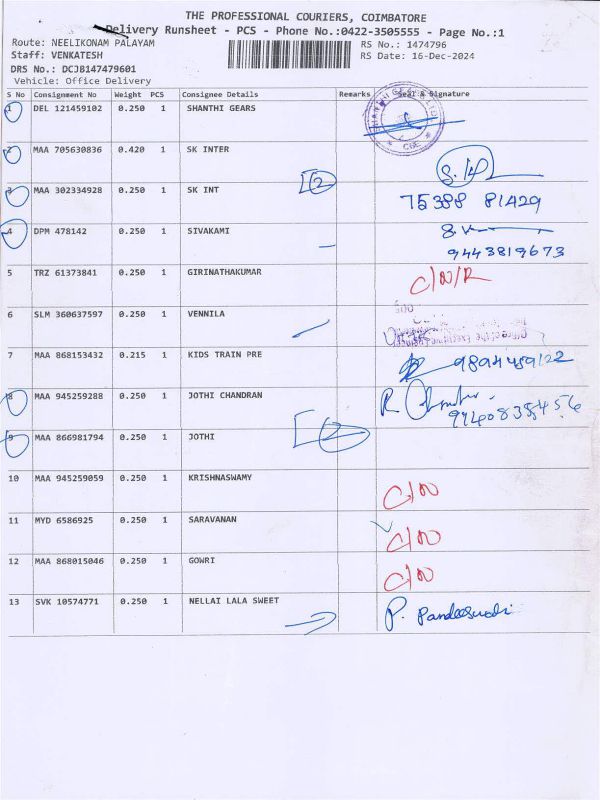 THE PROFESSIONAL COURIERS, COIMBATORE
Delivery Runsheet - PCS - Phone No.:0422-3505555 - Page No.:1
Route: NEELIKONAM PALAYAM RS No.: 1474796
Staff: VENKATESH RS Date: 16-Dec-2024
DRS No.: DCJB147479601
Vehicle: Office Delivery
S No Consignment No Weight PCS Consignee Details Remarks Seal & Signature
1 DEL 121459102 0.250 1 SHANTHI GEARS
CBE
2 MAA 705630836 0.420 1 SK INTER
3 MAA 302334928 0.250 1 SK INT 2
75388 81429
4 DPM 478142 0.250 1 SIVAKAMI
9443819673
5 TRZ 61373841 0.250 1 GIRINATHAKUMAR C/N/R
6 SLM 360637597 0.250 1 VENNILA
Office of the Executive Engineer
7 MAA 868153432 0.215 1 KIDS TRAIN PRE
8 MAA 945259288 0.250 1 JOTHI CHANDRAN
9 MAA 866981794 0.250 1 JOTHI 2
10 MAA 945259059 0.250 1 KRISHNASWAMY C/N
11 MYD 6586925 0.250 1 SARAVANAN C/N
12 MAA 868015046 0.250 1 GOWRI C/N
13 SVK 10574771 0.250 1 NELLAI LALA SWEET
P.